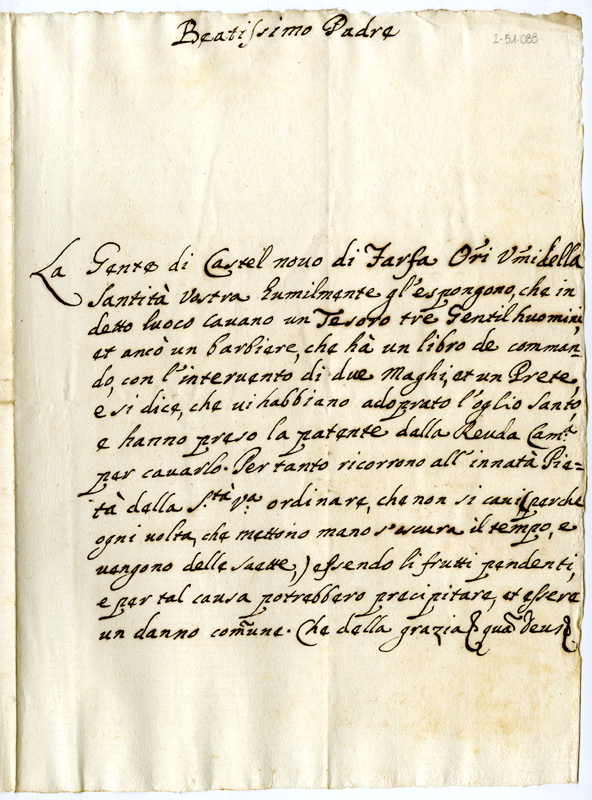 Beatissimo Padre
2-51-088
La Gente di Castel nouo di Farfa Ori Vmi della
Santità Vostra humilmente gl'espongono, che in
detto luoco cauano un Tesoro trè Gentilhuomini,
et ancò un barbiere, che hà un libro de comman-
do, con l'interuento di due Maghi, et un Prete,
e si dice, che ui habbiano adoprato l'oglio santo,
e hanno preso la patente dalla Reuda Cam.ª
per cauarlo. Per tanto ricorrono all'innatà Pie=
tà della S.tà V.ª ordinare, che non si caui (perche
ogni uolta, che mettono mano s'oscura il tempo, e
uengono delle saette,) essendo li frutti pendenti,
e per tal causa potrebbero precipitare, et essere
un danno comune. Che della grazia &c quã Deus &c